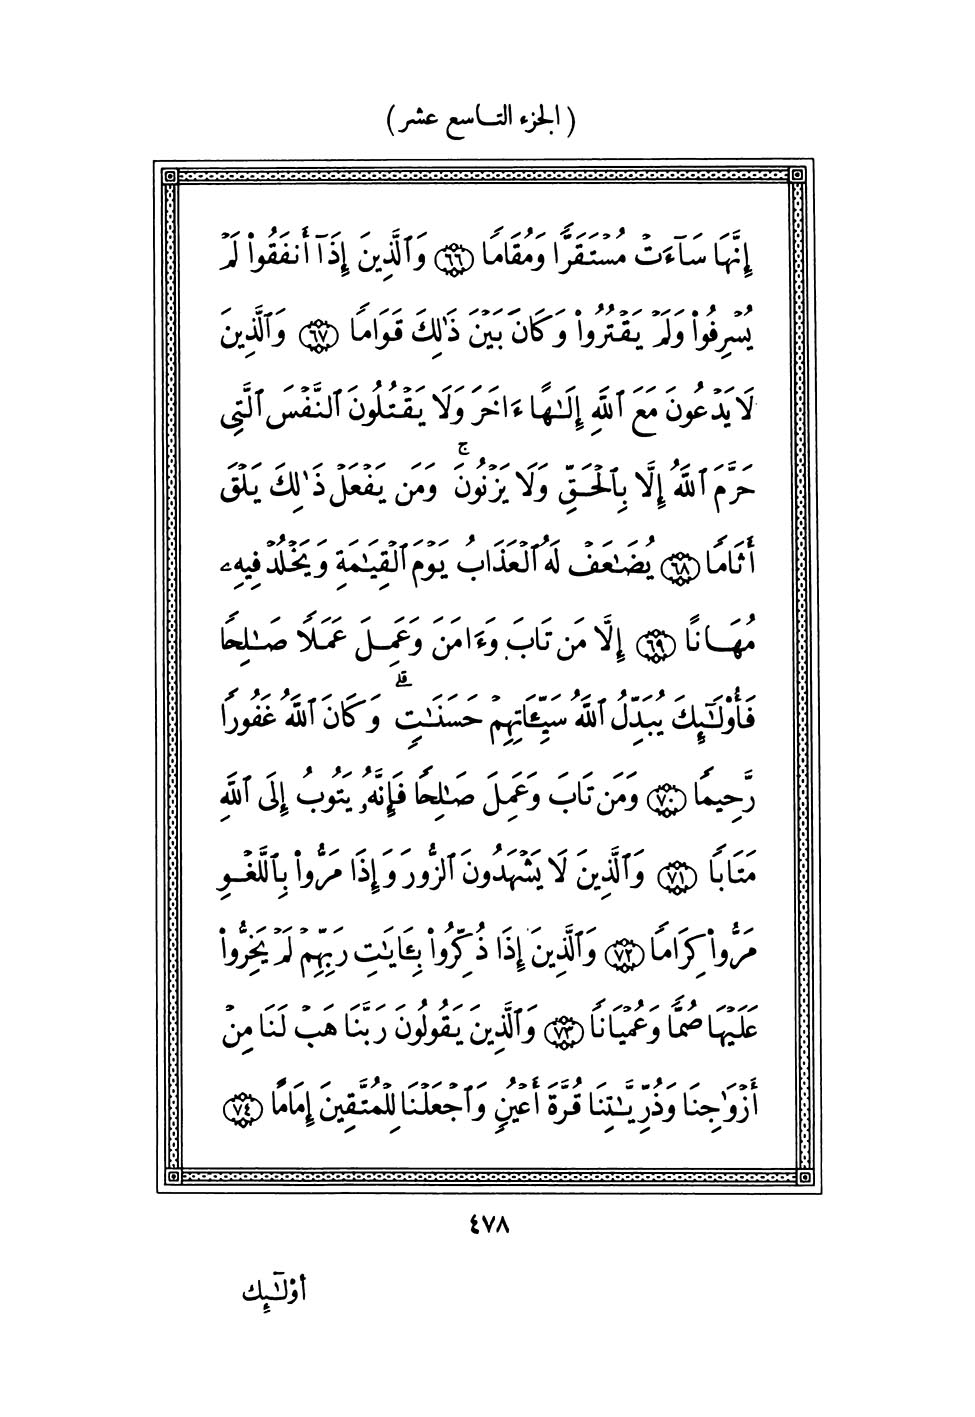 ( الجزء التاسع عشر )
إِنَّهَا سَآءَتْ مُسْتَقَرًّا وَمُقَامًا ٦٦ وَٱلَّذِينَ إِذَآ أَنفَقُوا۟ لَمْ
يُسْرِفُوا۟ وَلَمْ يَقْتُرُوا۟ وَكَانَ بَيْنَ ذَٰلِكَ قَوَامًا ٦٧ وَٱلَّذِينَ
لَا يَدْعُونَ مَعَ ٱللَّهِ إِلَـٰهًا ءَاخَرَ وَلَا يَقْتُلُونَ ٱلنَّفْسَ ٱلَّتِى
حَرَّمَ ٱللَّهُ إِلَّا بِٱلْحَقِّ وَلَا يَزْنُونَ ۚ وَمَن يَفْعَلْ ذَٰلِكَ يَلْقَ
أَثَامًا ٦٨ يُضَـٰعَفْ لَهُ ٱلْعَذَابُ يَوْمَ ٱلْقِيَـٰمَةِ وَيَخْلُدْ فِيهِۦ
مُهَانًا ٦٩ إِلَّا مَن تَابَ وَءَامَنَ وَعَمِلَ عَمَلًا صَـٰلِحًا
فَأُو۟لَـٰٓئِكَ يُبَدِّلُ ٱللَّهُ سَيِّـَٔاتِهِمْ حَسَنَـٰتٍ ۗ وَكَانَ ٱللَّهُ غَفُورًا
رَّحِيمًا ٧٠ وَمَن تَابَ وَعَمِلَ صَـٰلِحًا فَإِنَّهُۥ يَتُوبُ إِلَى ٱللَّهِ
مَتَابًا ٧١ وَٱلَّذِينَ لَا يَشْهَدُونَ ٱلزُّورَ وَإِذَا مَرُّوا۟ بِٱللَّغْوِ
مَرُّوا۟ كِرَامًا ٧٢ وَٱلَّذِينَ إِذَا ذُكِّرُوا۟ بِـَٔايَـٰتِ رَبِّهِمْ لَمْ يَخِرُّوا۟
عَلَيْهَا صُمًّا وَعُمْيَانًا ٧٣ وَٱلَّذِينَ يَقُولُونَ رَبَّنَا هَبْ لَنَا مِنْ
أَزْوَٰجِنَا وَذُرِّيَّـٰتِنَا قُرَّةَ أَعْيُنٍ وَٱجْعَلْنَا لِلْمُتَّقِينَ إِمَامًا ٧٤
٤٧٨
أو۟لَـٰٓئِك